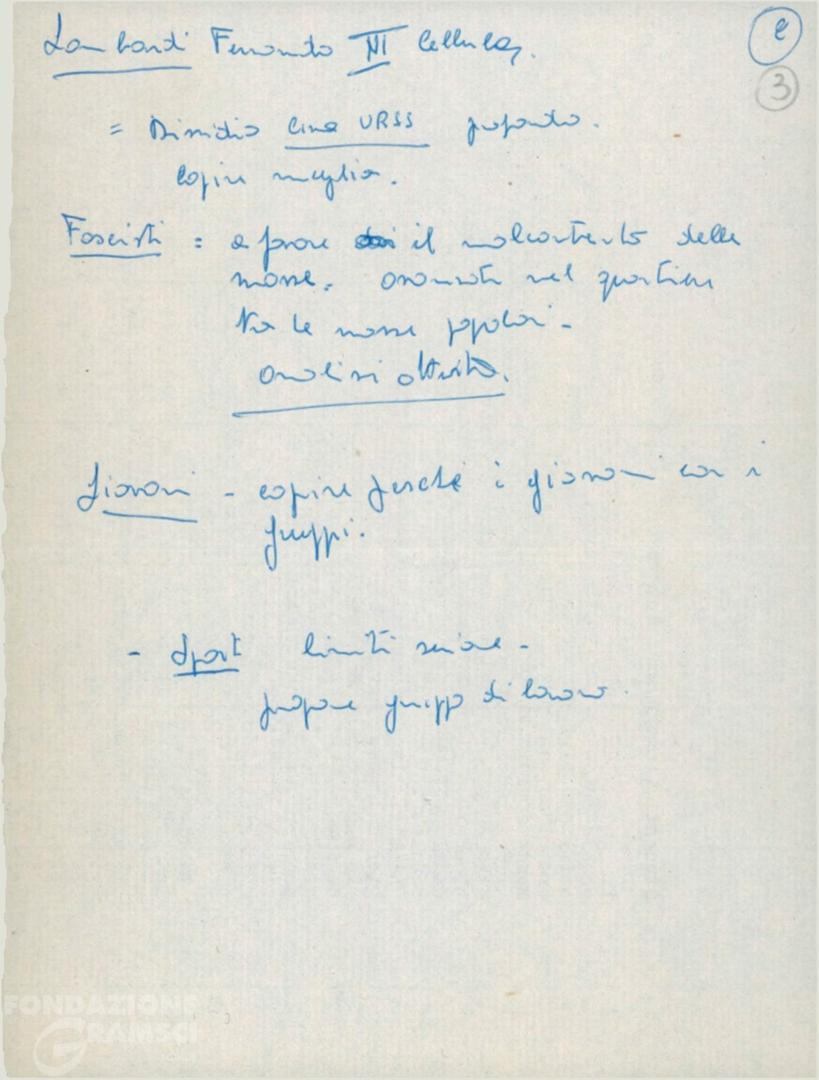 e
3
Lombardi Fernando III Cellula
= Dissidio Cina URSS profondo.
Capire meglio.
Fascisti : il malcontento delle
masse. nel quartiere
tra le masse popolari -
analisi attenta.
Giovani - capire perché i giovani con i
gruppi.
- Sport limiti
propone gruppo di lavoro.
FONDAZIONE
GRAMSCI